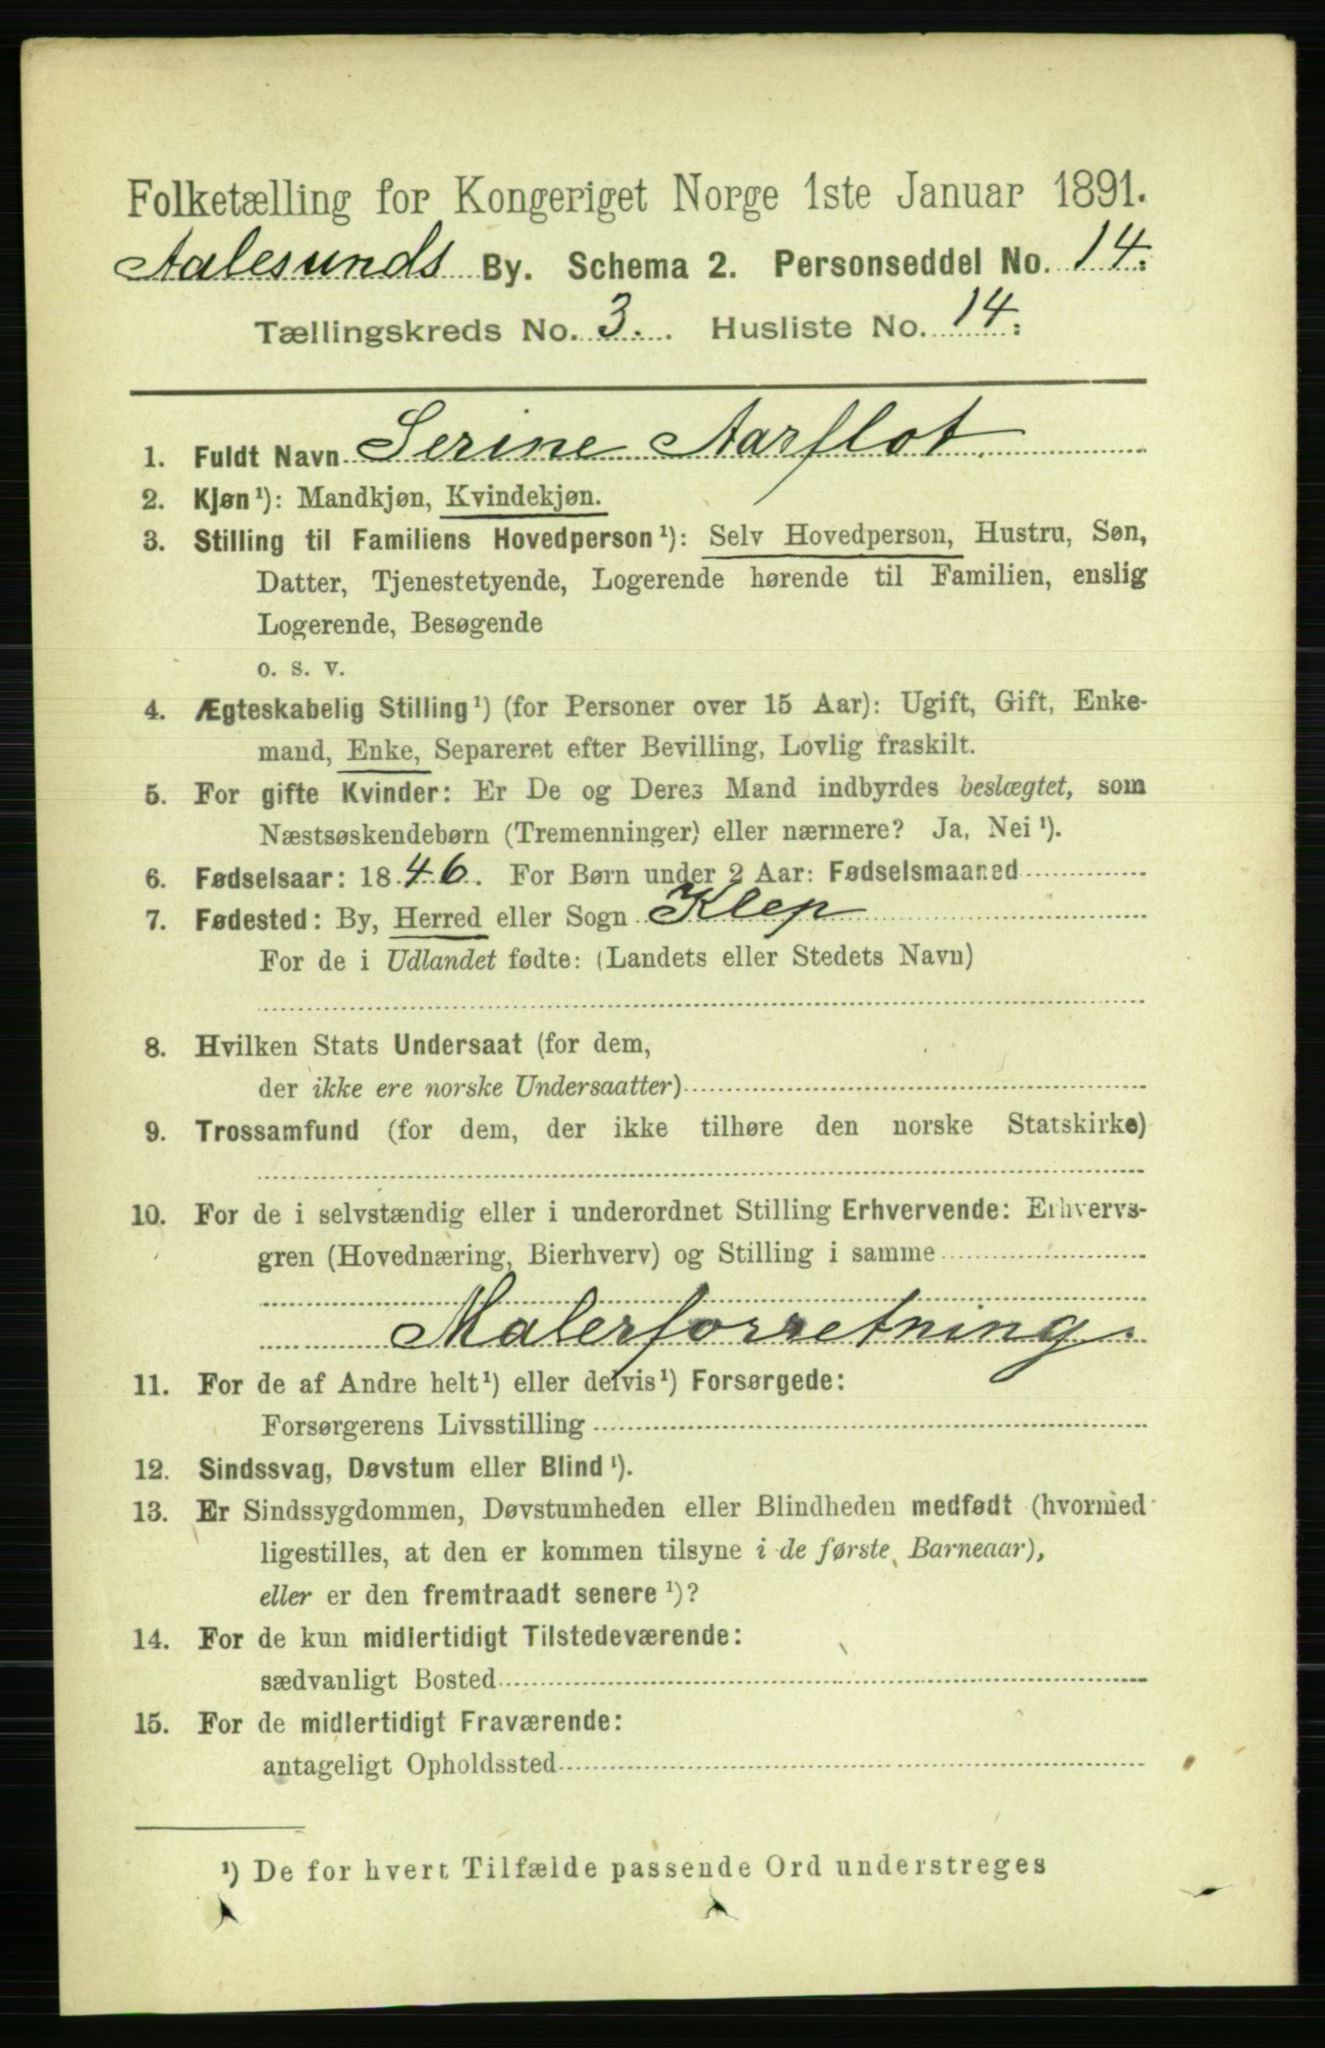 Folketælling for Kongeriget Norge 1ste Januar 1891.
Aalesunds By. Schema 2. Personseddel No. 14.
Tællingskreds No. 3. Husliste No. 14:
1. Fuldt Navn Serine Aarflot.
2. Kjøn¹): Mandkjøn, Kvindekjøn.
3. Stilling til Familiens Hovedperson¹): Selv Hovedperson, Hustru, Søn,
Datter, Tjenestetyende, Logerende hørende til Familien, enslig
Logerende, Besøgende
o. s. v.
4. Ægteskabelig Stilling¹) (for Personer over 15 Aar): Ugift, Gift, Enke-
mand, Enke, Separeret efter Bevilling, Lovlig fraskilt.
5. For gifte Kvinder: Er De og Deres Mand indbyrdes beslægtet, som
Næstsøskendebørn (Tremenninger) eller nærmere? Ja, Nei¹).
6. Fødselsaar: 1846. For Børn under 2 Aar: Fødselsmaaned
7. Fødested: By, Herred eller Sogn Klep
For de i Udlandet fødte: (Landets eller Stedets Navn)
8. Hvilken Stats Undersaat (for dem,
der ikke ere norske Undersaatter)
9. Trossamfund (for dem, der ikke tilhøre den norske Statskirke)
10. For de i selvstændig eller i underordnet Stilling Erhvervende: Erhvervs-
gren (Hovednæring, Bierhverv) og Stilling i samme
Malerforretning.
11. For de af Andre helt¹) eller delvis¹) Forsørgede:
Forsørgerens Livsstilling
12. Sindssvag, Døvstum eller Blind¹).
13. Er Sindssygdommen, Døvstumheden eller Blindheden medfødt (hvormed
ligestilles, at den er kommen tilsyne i de første Barneaar),
eller er den fremtraadt senere¹)?
14. For de kun midlertidigt Tilstedeværende:
sædvanligt Bosted
15. For de midlertidigt Fraværende:
antageligt Opholdssted
¹) De for hvert Tilfælde passende Ord understreges